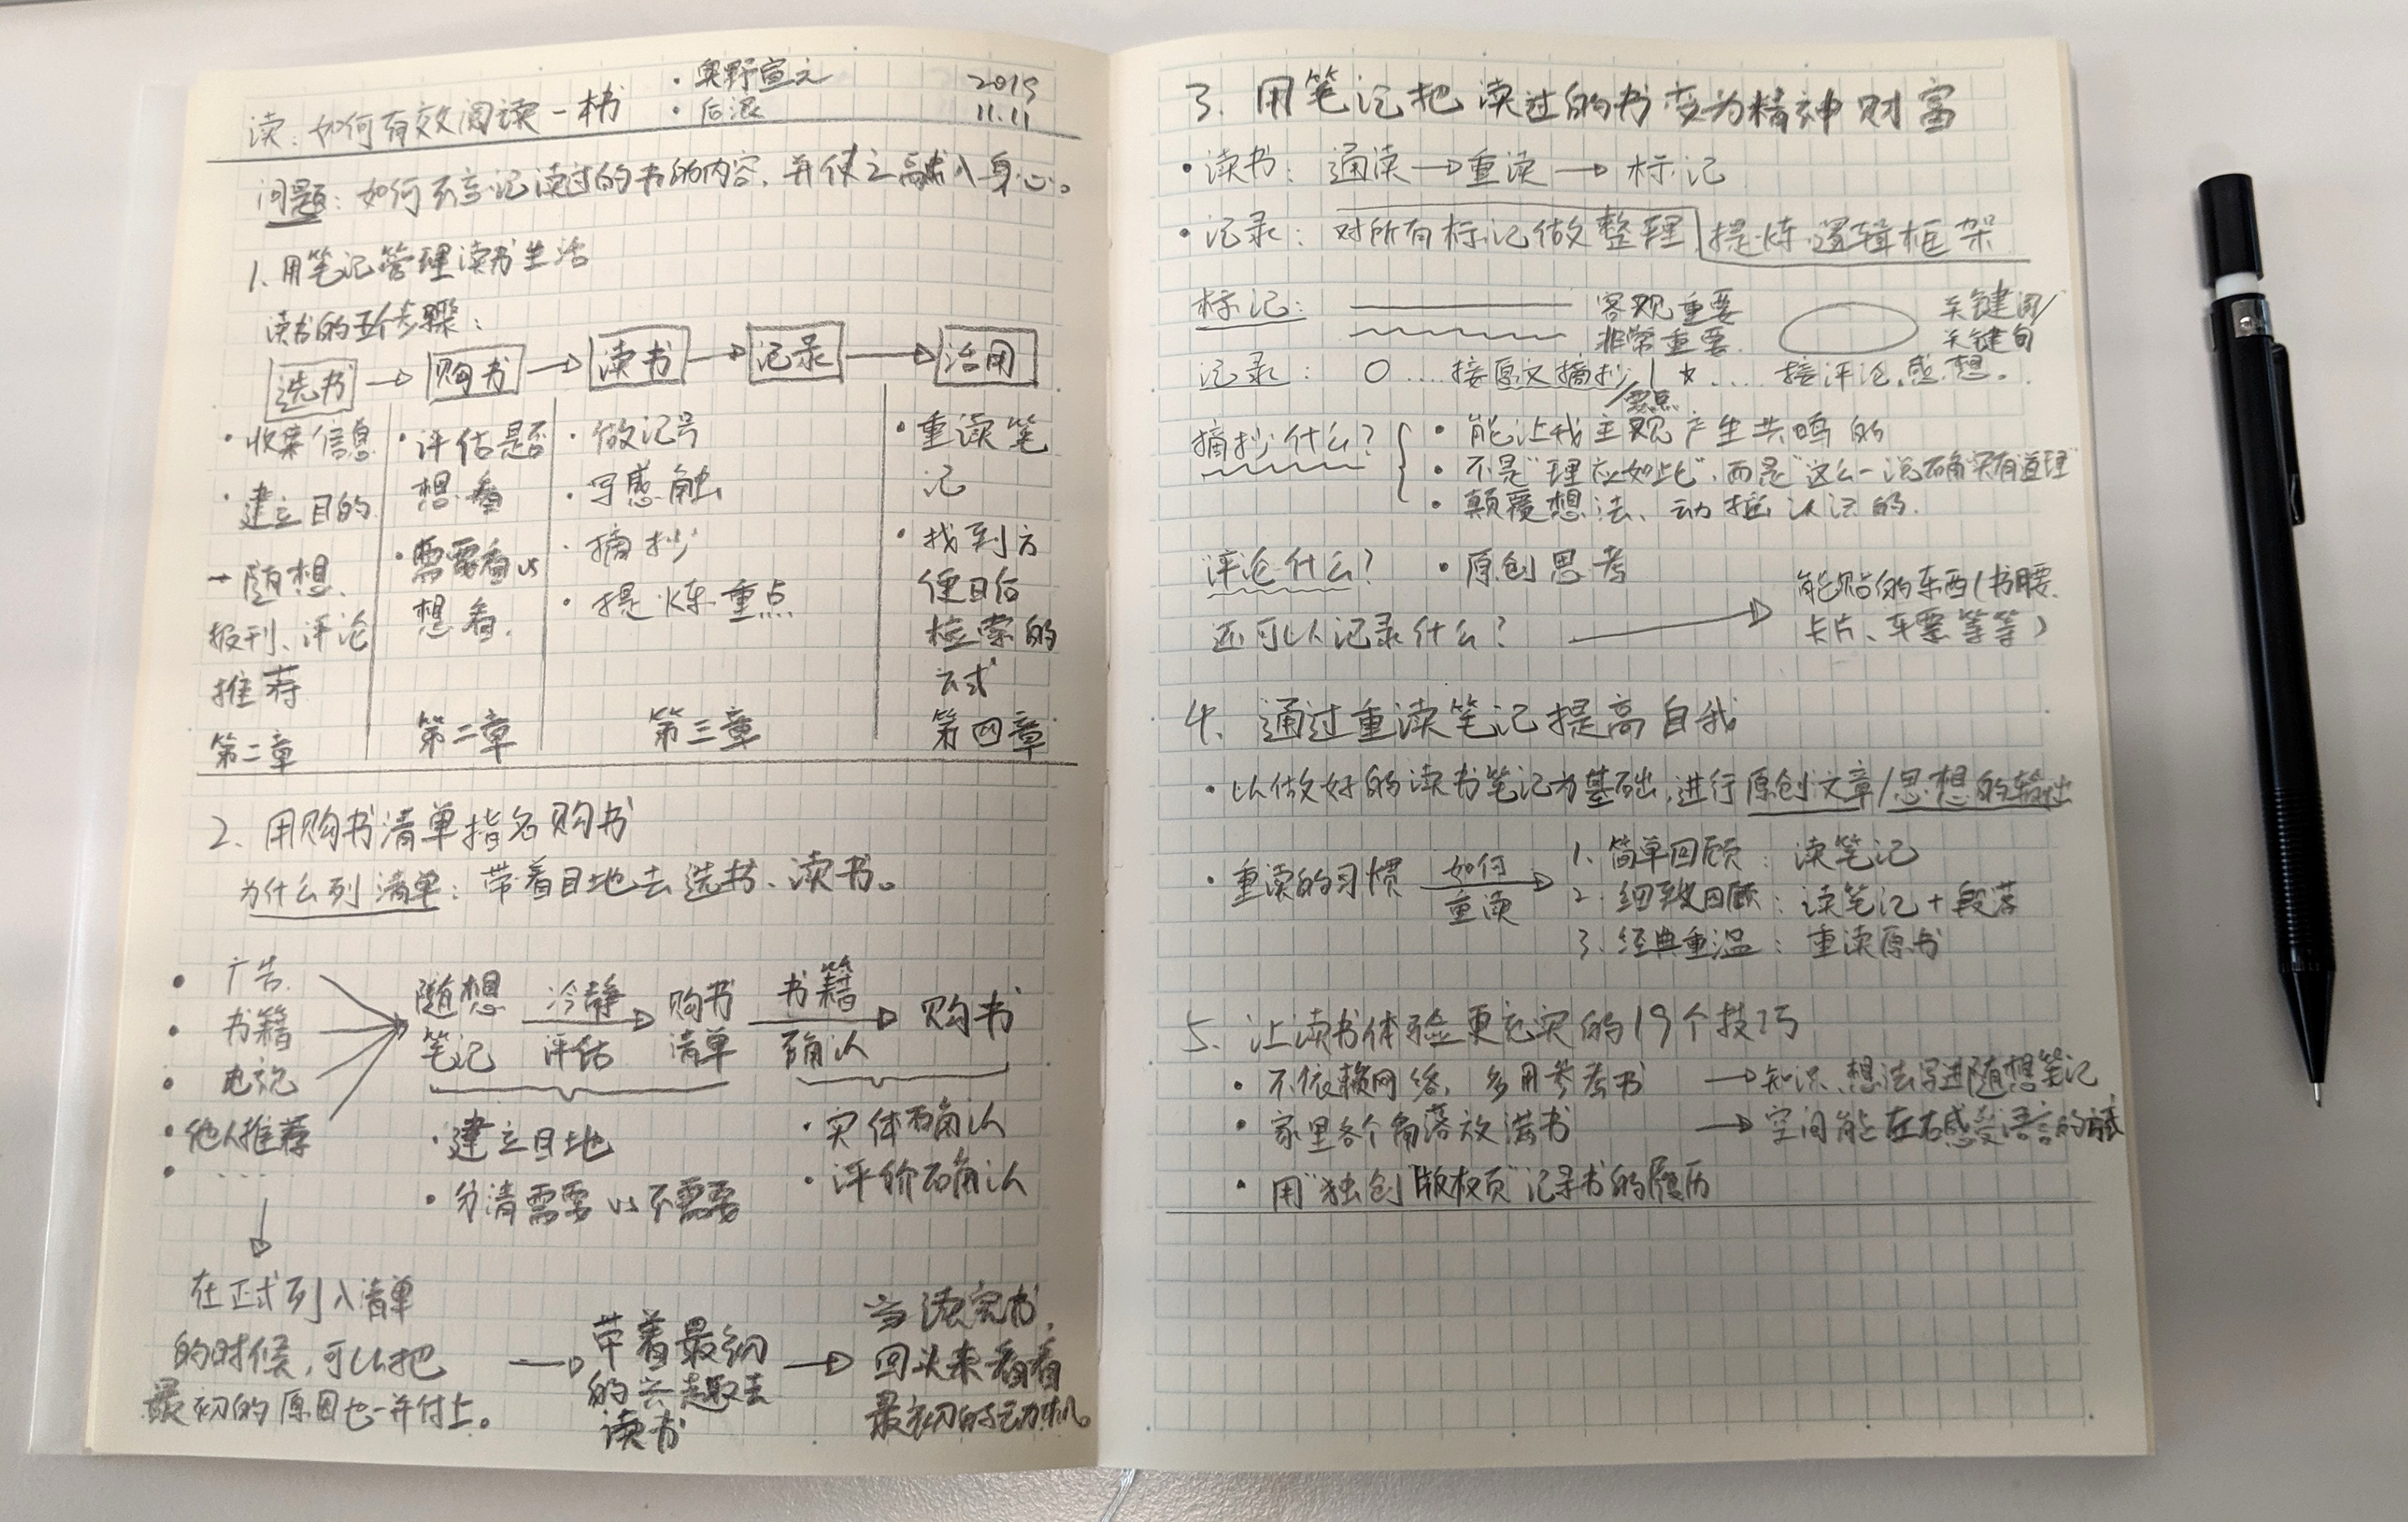 读:如何有效阅读一本书
·奥野宣之
·后浪
2019
11.11
问题:如何不忘记读过的书的内容,并使之融入身心。
1.用笔记管理读书生活
读书的五个步骤:
选书 → 购书 → 读书 → 记录 → 活用
·收集信息
·建立目的
→随想、
报刊、评论
推荐
第二章
·评估是否
想看
·需要看vs
想看.
第二章
·做记号
·写感触
·摘抄
·提炼重点
第三章
·重读笔
记
·找到方
便日后
检索的
方式
第四章
2、用购书清单指名购书
为什么列清单:带着目地去选书、读书。
·广告
·书籍
·电视
·他人推荐
·....
随想
笔记
冷静
评估
购书
清单
书籍
确认
购书
·建立目地
·分清需要vs不需要
·实体确认
·评价确认
在正式列入清单
的时候,可以把
最初的原因也一并付上。
→ 带着最初
的兴趣去
读书
→ 当读完书,
回头来看看
最初的动机。
3.用笔记把读过的书变为精神财富
·读书:通读→重读→标记
·记录:对所有标记做整理 提炼逻辑框架
标记:
客观重要
非常重要.
关键词/
关键句
记录: ○ ....接原文摘抄/要点 | ☆....接评论、感想。
摘抄什么?
·能让我主观产生共鸣的
·不是"理应如此",而是"这么一说确实有道理"
·颠覆想法、动摇认识的.
评论什么? ·原创思考
还可以记录什么? → 能贴的东西(书腰、
卡片、车票等等)
4、通过重读笔记提高自我
·以做好的读书笔记为基础,进行原创文章/思想的输出
·重读的习惯
如何
重读
1.简单回顾:读笔记
2.细致回顾:读笔记+段落
3.经典重温:重读原书
5、让读书体验更充实的19个技巧
·不依赖网络,多用参考书 →知识、想法写进随想笔记
·家里各个角落放满书 →空间能左右感受语言的
·用"独创"版权页"记录书的履历